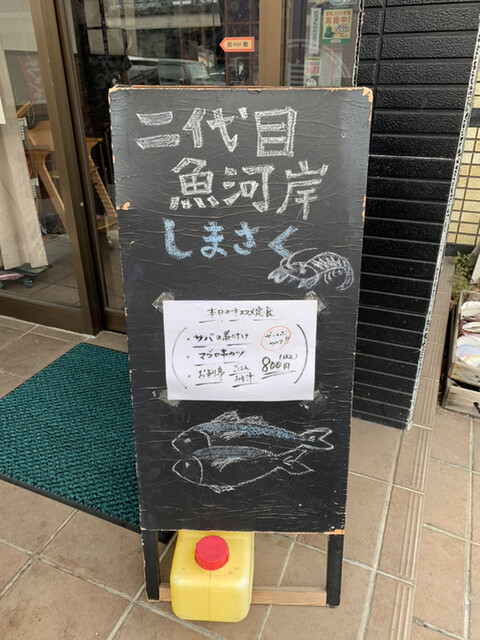 二代目
魚河岸
しまさく
本日のオススメ定食
・サバの煮つけ
・マグロ串カツ
・お刺身 ごはん みそ汁
800円 (税込)
実施中!